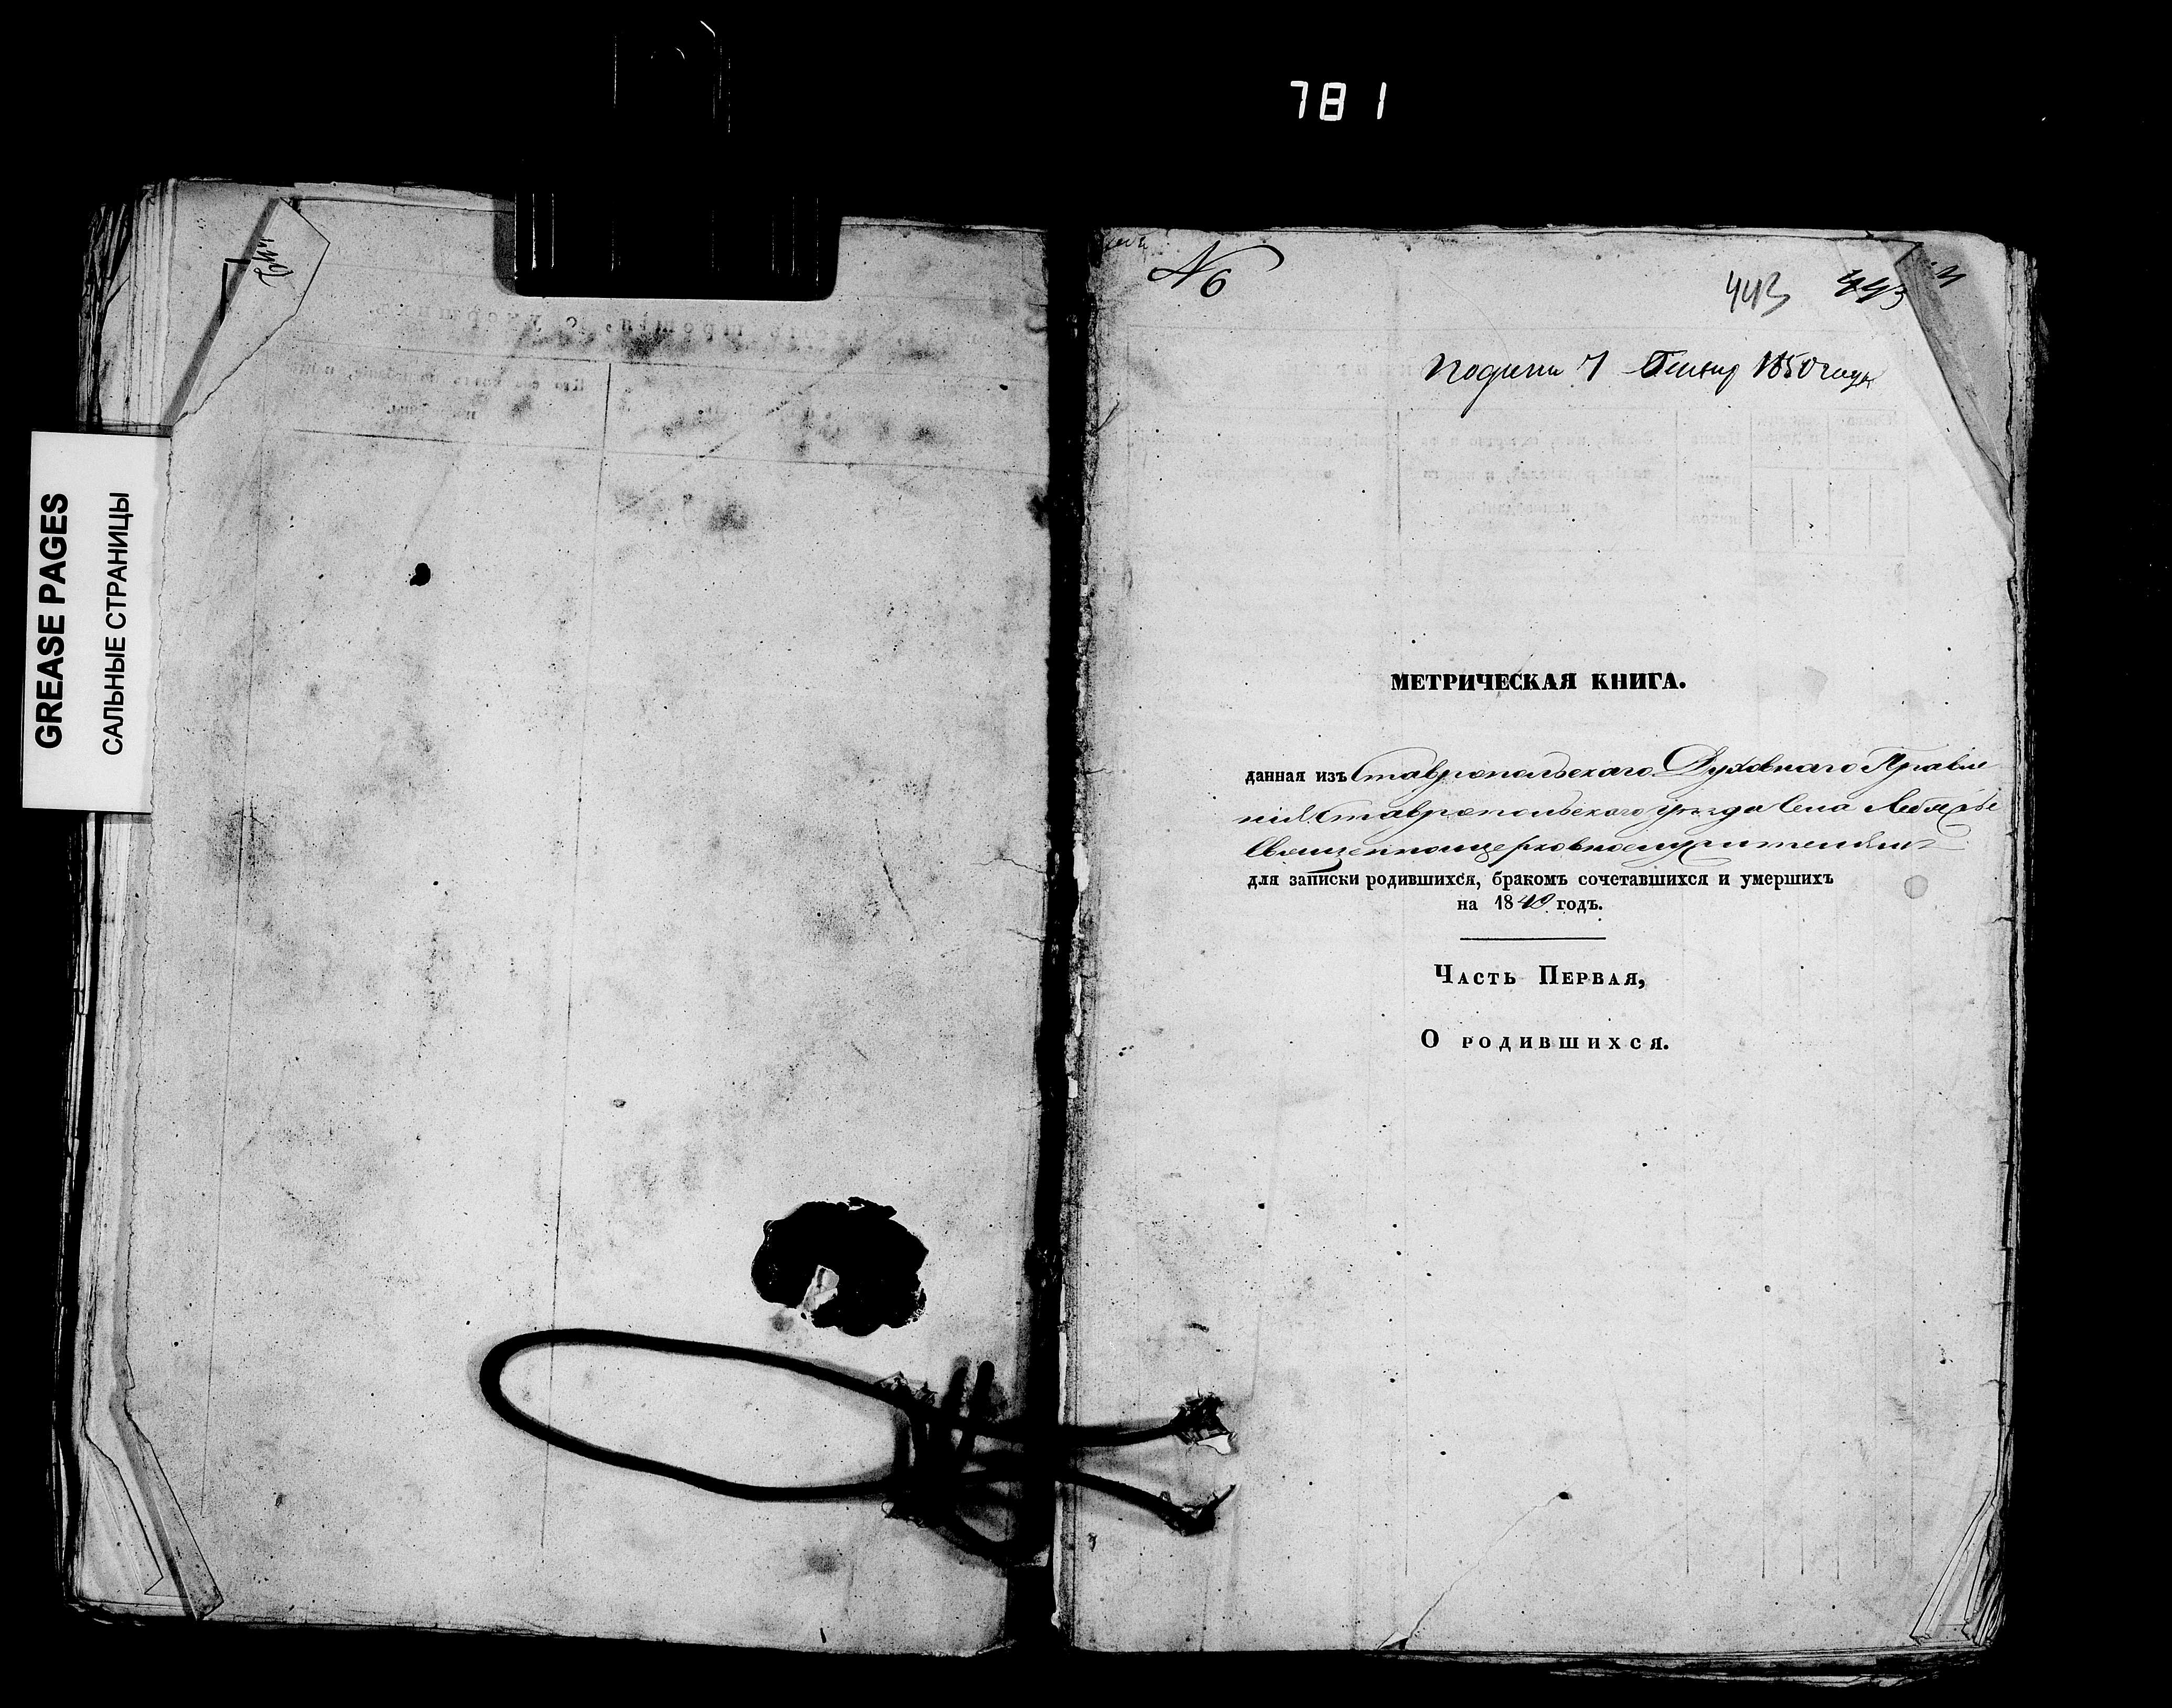 781
GREASE PAGES
САЛЬНЫЕ СТРАНИЦЫ
№ 6
443 443
Генвар 1850 года
МЕТРИЧЕСКАЯ КНИГА.
данная изъ Ставропольскаго Духовнаго Правле
нія Ставропольскаго уѣзда Села
Священноцерковнослужителямъ
для записки родившихся, бракомъ сочетавшихся и умершихъ
на 1849 годъ.
Часть Первая,
О родившихся.